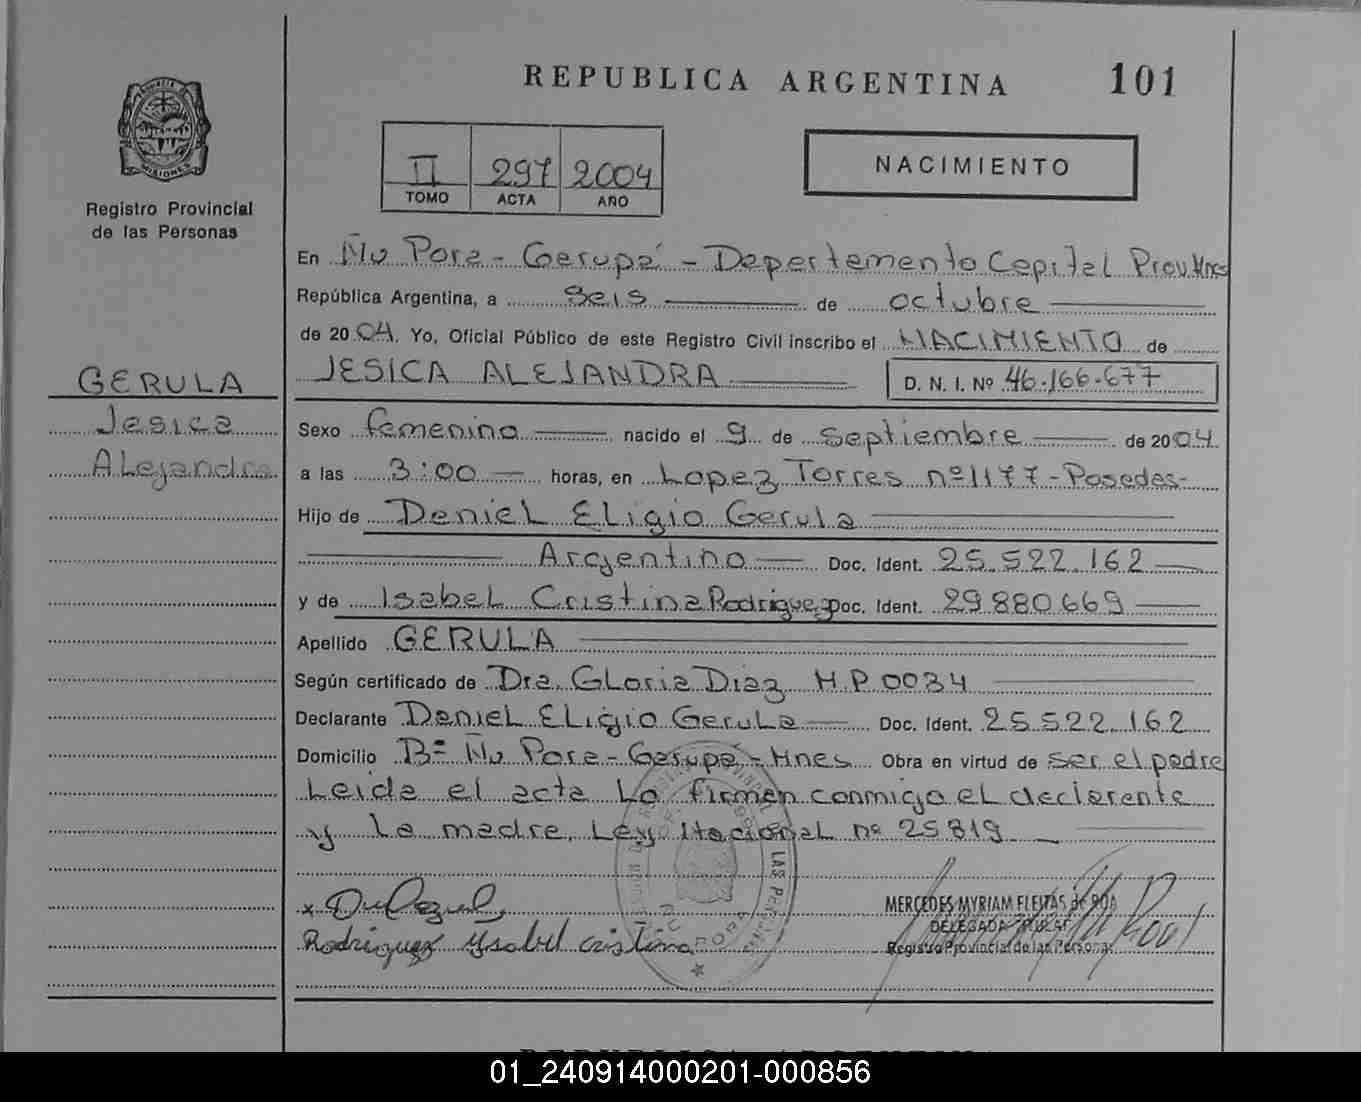 REPUBLICA ARGENTINA 101
MISIONES
Registro Provincial
de las Personas
II 297 2004
TOMO ACTA AÑO
NACIMIENTO
En Ñu Pora - Garupá - Departamento Capital Prov. Mnes
República Argentina, a seis de octubre
de 2004. Yo, Oficial Público de este Registro Civil inscribo el NACIMIENTO de
JESICA ALEJANDRA D. N. I. Nº 46.166.677
GERULA
Jesica
Alejandra
Sexo femenino nacido el 9 de septiembre de 2004
a las 3:00 horas, en Lopez Torres nº 1177 - Posadas -
Hijo de Daniel Eligio Gerula
Argentino Doc. Ident. 25.522.162
y de Isabel Cristina Rodriguez Doc. Ident. 29880669
Apellido GERULA
Según certificado de Dra. Gloria Diaz M.P. 0034
Declarante Daniel Eligio Gerula Doc. Ident. 25.522.162
Domicilio Bº Ñu Pora - Garupá - Mnes Obra en virtud de ser el padre
Leida el acta la firman conmigo el declarante
y la madre. Ley Nacional nº 25819
Rodriguez Ysabel Cristina
MERCEDES MYRIAM FLEITAS de ROA
DELEGADA TITULAR
Registro Provincial de las Personas
REPUBLICA ARGENTINA
01_240914000201-000856